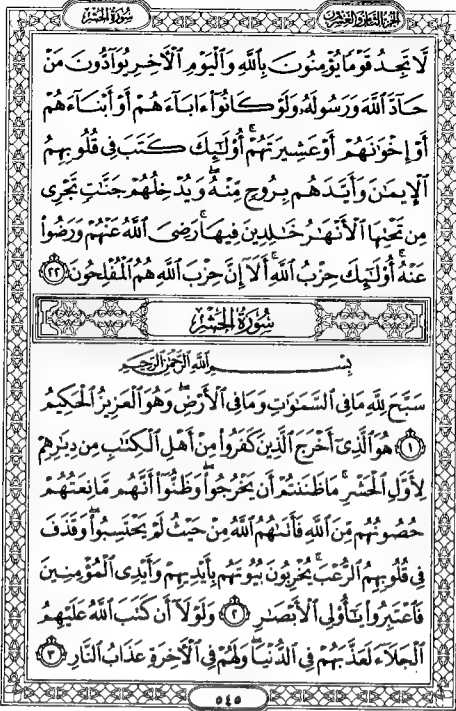 سُورَةُ الحَشْرِ
الجُزْءُ الثَّامِنُ وَالعِشْرُونَ
لَّا تَجِدُ قَوْمًا يُؤْمِنُونَ بِاللَّهِ وَالْيَوْمِ الْآخِرِ يُوَآدُّونَ مَنْ
حَآدَّ اللَّهَ وَرَسُولَهُۥ وَلَوْ كَانُوٓا۟ ءَابَآءَهُمْ أَوْ أَبْنَآءَهُمْ
أَوْ إِخْوَٰنَهُمْ أَوْ عَشِيرَتَهُمْ ۚ أُو۟لَٰٓئِكَ كَتَبَ فِى قُلُوبِهِمُ
الْإِيمَٰنَ وَأَيَّدَهُم بِرُوحٍ مِّنْهُ ۖ وَيُدْخِلُهُمْ جَنَّٰتٍ تَجْرِى
مِن تَحْتِهَا الْأَنْهَٰرُ خَٰلِدِينَ فِيهَا ۚ رَضِىَ اللَّهُ عَنْهُمْ وَرَضُوا۟
عَنْهُ ۚ أُو۟لَٰٓئِكَ حِزْبُ اللَّهِ ۚ أَلَآ إِنَّ حِزْبَ اللَّهِ هُمُ الْمُفْلِحُونَ ٢٢
سُورَةُ الحَشْرِ
بِسْمِ اللَّهِ الرَّحْمَٰنِ الرَّحِيمِ
سَبَّحَ لِلَّهِ مَا فِى السَّمَٰوَٰتِ وَمَا فِى الْأَرْضِ ۖ وَهُوَ الْعَزِيزُ الْحَكِيمُ
١ هُوَ الَّذِىٓ أَخْرَجَ الَّذِينَ كَفَرُوا۟ مِنْ أَهْلِ الْكِتَٰبِ مِن دِيَٰرِهِمْ
لِأَوَّلِ الْحَشْرِ ۚ مَا ظَنَنتُمْ أَن يَخْرُجُوا۟ ۖ وَظَنُّوٓا۟ أَنَّهُم مَّانِعَتُهُمْ
حُصُونُهُم مِّنَ اللَّهِ فَأَتَىٰهُمُ اللَّهُ مِنْ حَيْثُ لَمْ يَحْتَسِبُوا۟ ۖ وَقَذَفَ
فِى قُلُوبِهِمُ الرُّعْبَ ۚ يُخْرِبُونَ بُيُوتَهُم بِأَيْدِيهِمْ وَأَيْدِى الْمُؤْمِنِينَ
فَاعْتَبِرُوا۟ يَٰٓأُو۟لِى الْأَبْصَٰرِ ٢ وَلَوْلَآ أَن كَتَبَ اللَّهُ عَلَيْهِمُ
الْجَلَآءَ لَعَذَّبَهُمْ فِى الدُّنْيَا ۖ وَلَهُمْ فِى الْآخِرَةِ عَذَابُ النَّارِ ٣
٥٤٥